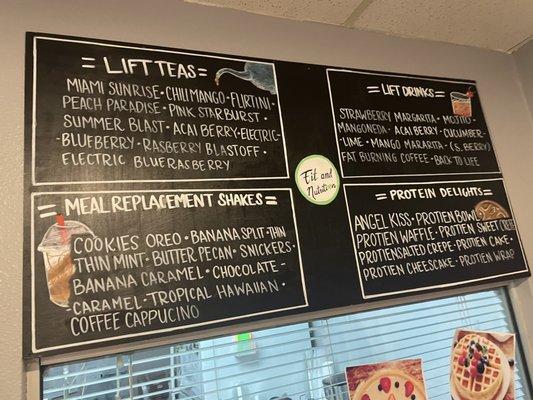 = LIFT TEAS =
MIAMI SUNRISE • CHILI MANGO • FLIRTINI •
PEACH PARADISE • PINK STARBURST •
SUMMER BLAST • ACAI BERRY - ELECTRIC -
- BLUEBERRY • RASBERRY BLASTOFF •
ELECTRIC BLUERASBERRY
= LIFT DRINKS =
STRAWBERRY MARGARITA • MOJITO •
MANGONEDA • ACAI BERRY • CUCUMBER -
- LIME • MANGO MARARITA • (S. BERRY)
FAT BURNING COFFEE • BACK TO LIFE
Fit and
Nutrition
= MEAL REPLACEMENT SHAKES =
COOKIES OREO • BANANA SPLIT • THIN
THIN MINT • BUTTER PECAN • SNICKERS •
BANANA CARAMEL • CHOCOLATE -
- CARAMEL • TROPICAL HAWAIIAN •
COFFEE CAPPUCINO
= PROTEIN DELIGHTS =
ANGEL KISS • PROTIEN BOWL
PROTIEN WAFFLE • PROTIEN SWEET CREPE
PROTIEN SALTED CREPE • PROTIEN CAKE •
PROTIEN CHEESCAKE • PROTIEN WRAP